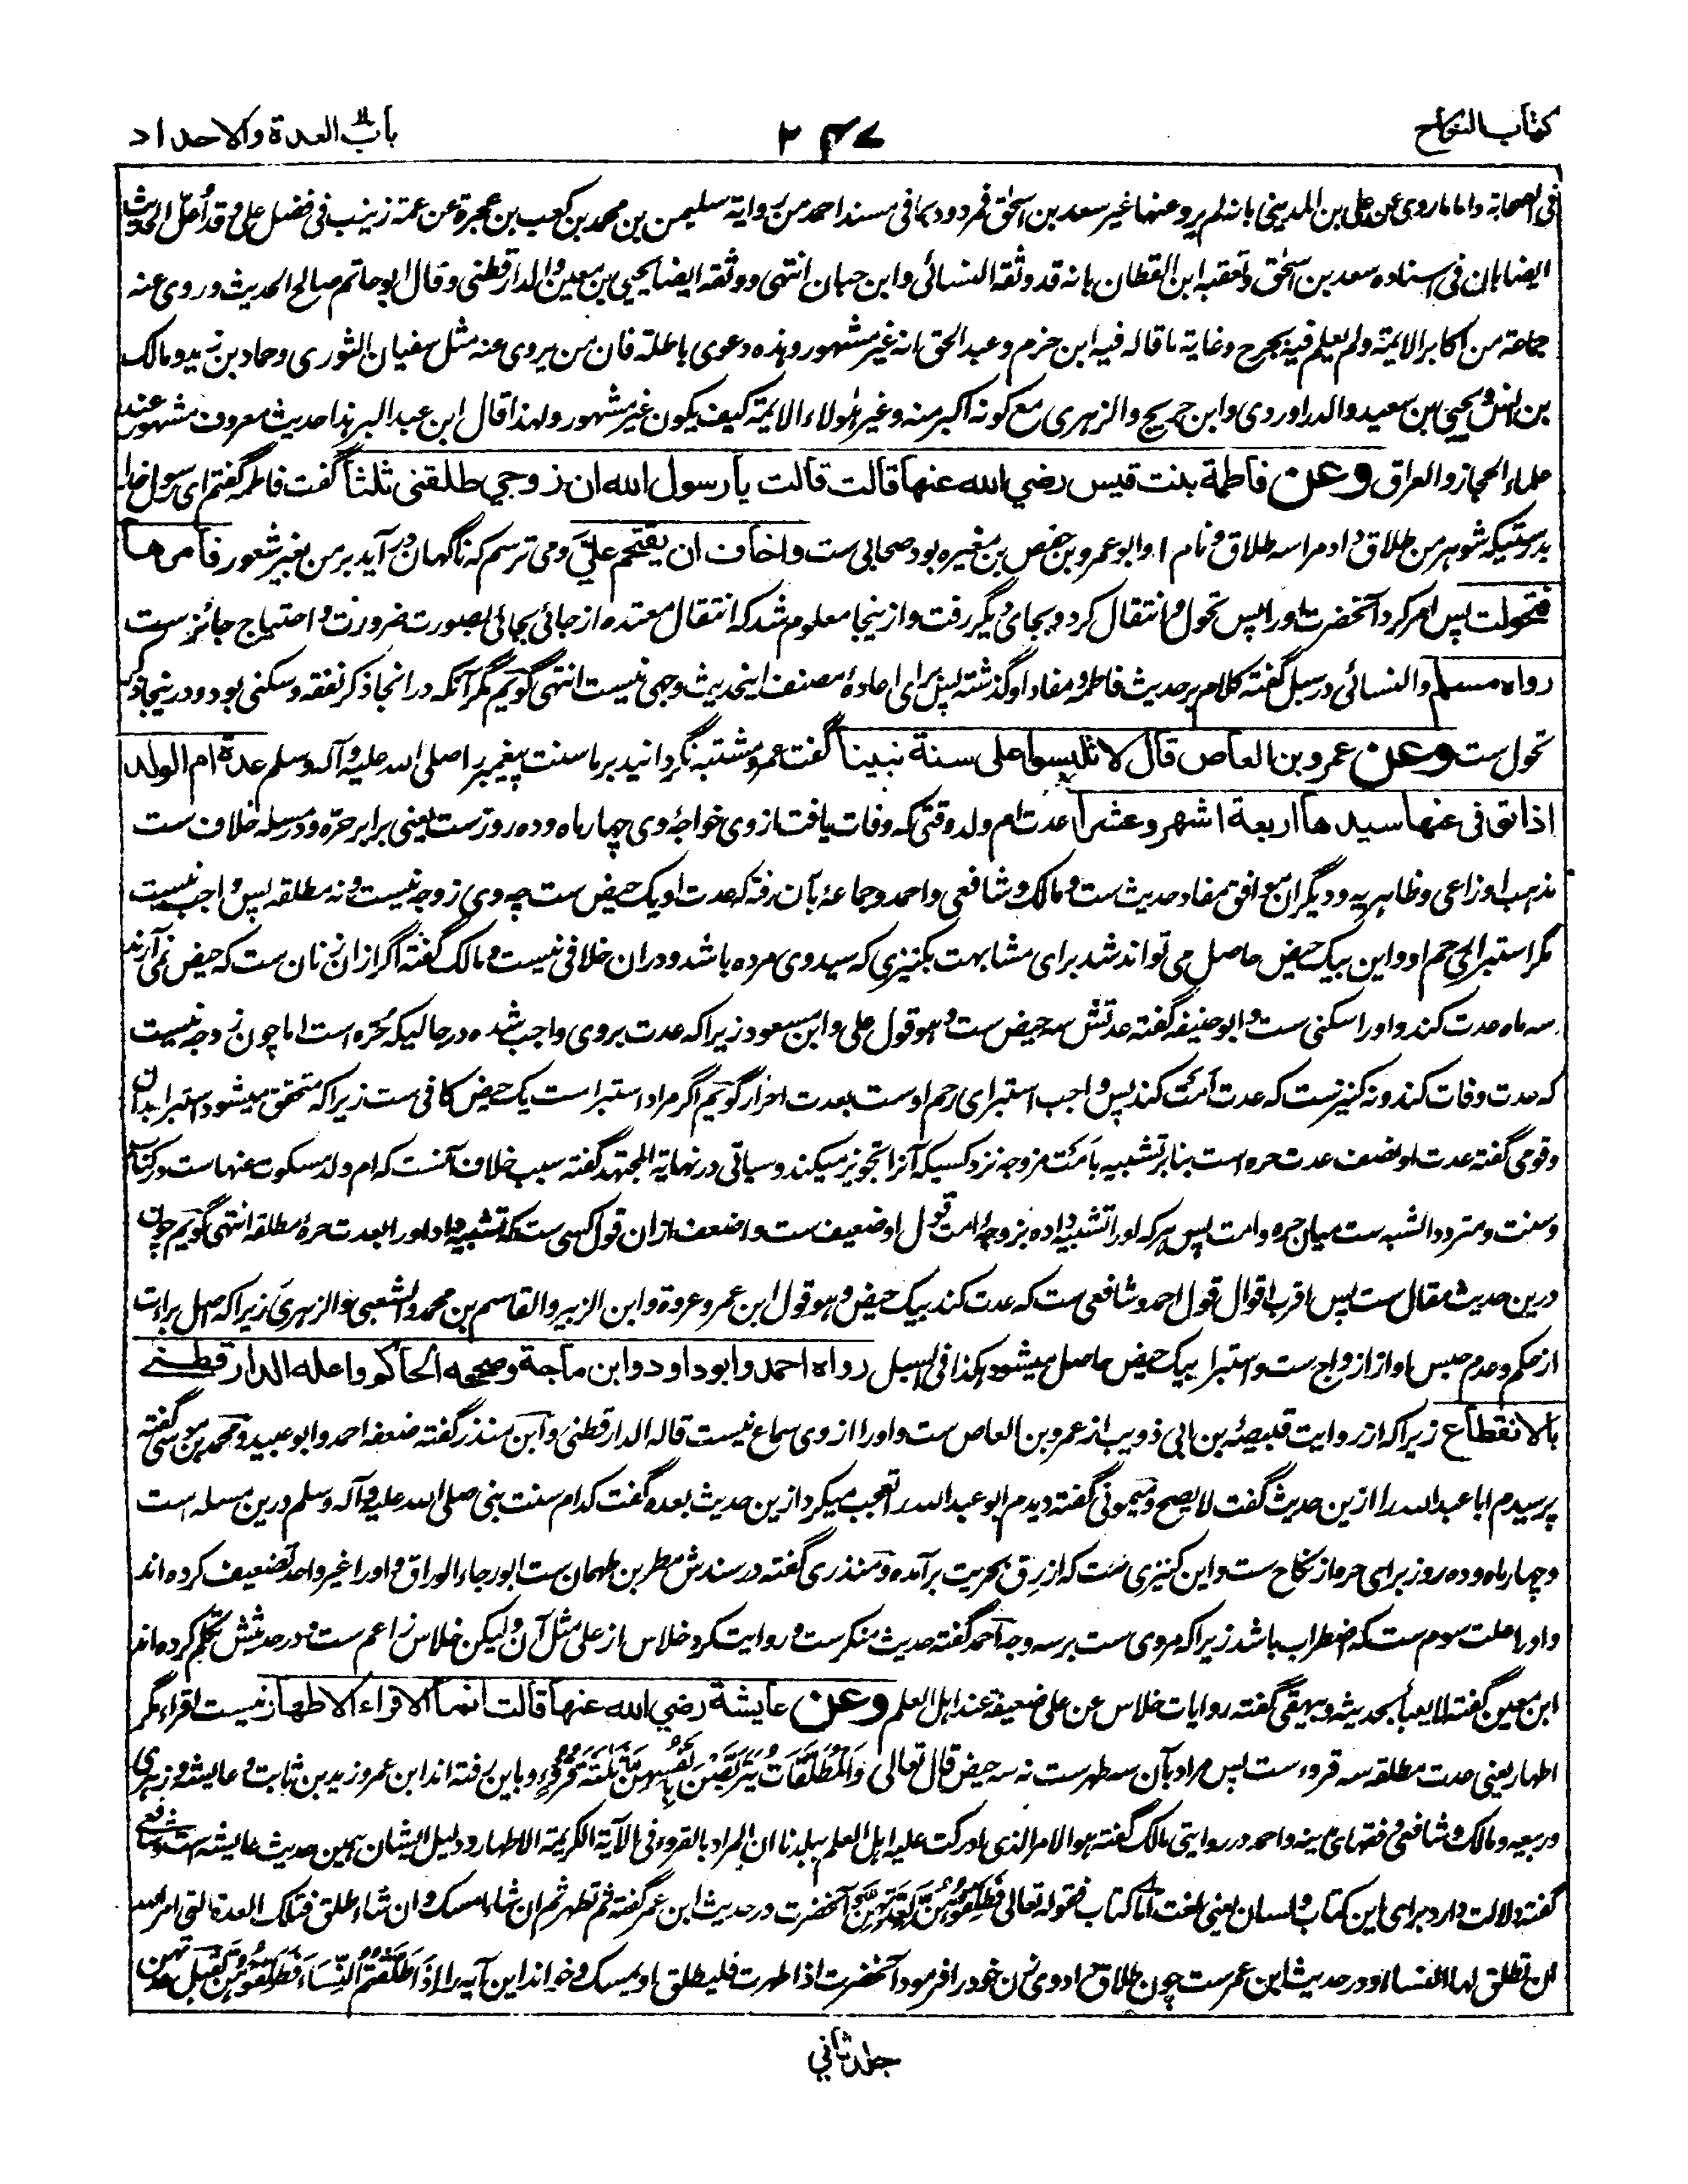 كتاب النكاح
۲۴۷
باب العدة والاحداد
فی الصحابة واما ما روی عن علی بن المدینی بانه لم یرو عنها غیر سعد بن اسحٰق فمردود بما فی مسند احمد من روایة سلیمن بن محمد بن کعب بن عجرة عن عمته زینب فی فضل علی وقد اُعلّ الحدیث
ایضا بان فی اسناده سعد بن اسحٰق وتعقبه ابن القطان بانه قد وثقه النسائی وابن حبان انتهی ووثقه ایضا یحیی بن معین والدارقطنی وقال ابو حاتم صالح الحدیث وروی عنه
جماعة من اکابر الایمة ولم یعلم فیه بجرح وغایة ما قاله فیه ابن حزم وعبد الحق انه غیر مشهور وهذه دعوی باطلة فان من یروی عنه مثل سفیان الثوری وحماد بن زید ومالک
بن انس ویحیی بن سعید والدراوردی وابن جریج والزهری مع کونه اکبر منه وغیر هٰولاء الایمة کیف یکون غیر مشهور ولهذا قال ابن عبد البر هذا حدیث معروف مشهور عند
علماء الحجاز والعراق وعن فاطمة بنت قیس رضی الله عنها قالت قالت یا رسول الله ان زوجی طلقنی ثلثا گفت فاطمه گفتم ای رسول خدا
بدرستیکه شوهر من طلاق داد مرا سه طلاق و نام او ابو عمرو بن حفص بن مغیره بود صحابی ست واخاف ان یقتحم علیّ ومی ترسم که ناگهان در آید بر من بغیر شعور فامرها
فتحولت پس امر کرد آنحضرت او را پس تحول و انتقال کرد و بجای دیگر رفت و از ینجا معلوم شد که انتقال معتده از جائی بجائی بصورت ضرورت و احتیاج جائز ست
رواه مسلم والنسائی در سبل گفته کلام بر حدیث فاطمه و مفاد او گذشته پس برای اعادهٔ مصنف اینحدیث وجهی نیست انتهی گویم مگر آنکه در انجا ذکر نفقه و سکنی بود و درینجا ذکر
تحول ست وعن عمرو بن العاص قال لا تلبسوا علی سنة نبینا گفت عمرو مشتبه نگردانید بر ما سنت پیغمبر ما صلی الله علیه وآله وسلم عدة ام الولد
اذا توفی عنها سیدها اربعة اشهر وعشرا عدت ام ولد وقتی که وفات یافت از وی خواجهٔ وی چهار ماه و ده روز ست یعنی برابر حرّه و در مسله خلاف ست
مذهب اوزاعی و ظاهریه و دیگران موافق مفاد حدیث ست و مالک و شافعی و احمد و جماعهٔ بآن رفته که عدت او یک حیض ست چه وی زوجه نیست و نه مطلقه پس واجب نیست
مگر استبرای رحم او و این بیک حیض حاصل می تواند شد برای مشابهت بکنیزی که سید وی مرده باشد و دران خلافی نیست و مالک گفته اگر از ان زنان ست که حیض نمی آرند
سه ماه عدت کند و او را سکنی ست و ابو حنیفه گفته عدتش سه حیض ست وهو قول علی وابن مسعود زیرا که عدت بر وی واجب شده درحالیکه حُرّه است اما چون زوجه نیست
که عدت وفات کند و نه کنیز ست که عدت اَمَت کند پس واجب استبرای رحم اوست بعدت احرار گویم اگر مراد استبرا ست یک حیض کافی ست زیرا که متحقق میشود استبرا بدان
و قومی گفته عدت او نصف عدت حره است بنا بر تشبیه بامت مزوجه نزد کسیکه آنرا تجویز میکند و سیاتی در نهایة المجتهد گفته سبب خلاف آنست که ام ولد مسکوت عنهاست در کتاب
و سنت و متردد الشبه ست میان حره و امت پس هر که او را تشبیه داده بزوجهٔ امت قول او ضعیف ست و اضعف ازان قول کسی ست که تشبیه داد او را بعدت حرهٔ مطلقه انتهی گویم چون
درین حدیث مقال ست پس اقرب اقوال قول احمد و شافعی ست که عدت کند بیک حیض وهو قول ابن عمر وعروة وابن الزبیر والقاسم بن محمد والشعبی والزهری زیرا که اصل براءت
از حکم و عدم حبس او از ازواج ست و استبرا بیک حیض حاصل میشود هکذا فی السبل رواه احمد وابو داود وابن ماجة وصححه الحاکم واعله الدارقطنی
بالانقطاع زیرا که از روایت قبیصهٔ بن ابی ذویب از عمرو بن العاص ست و او را از وی سماع نیست قاله الدارقطنی وابن منذر گفته ضعفه احمد وابو عبید ومحمد بن موسی گفته
پرسیدم ابا عبد الله را ازین حدیث گفت لا یصح ومیمونی گفته دیدم ابو عبد الله را تعجب میکرد ازین حدیث بعده گفت کدام سنت نبی صلی الله علیه وآله وسلم درین مسله است
و چهار ماه و ده روز برای حره از نکاح ست و این کنیزی ست که از رق بحریت بر آمده و منذری گفته در سندش مطر بن طهمان ست ابو رجاء الوراق و او را غیر واحد تضعیف کرده اند
و او را علت سوم ست که اضطراب باشد زیرا که مروی ست بر سه وجه احمد گفته حدیث منکر ست و روایت کرد خلاس از علی مثل آن ولیکن خلاس زاعم ست و در حدیثش تکلم کرده اند
ابن معین گفته لا یعبأ بحدیثه وبیهقی گفته روایات خلاس عن علی ضعیفة عند اهل العلم وعن عایشة رضی الله عنها قالت انما الاقراء الاطهار نیست اقراء مگر
اطهار یعنی عدت مطلقه سه قروء ست پس مراد بآن سه طهر ست نه سه حیض قال تعالی وَالْمُطَلَّقَاتُ یَتَرَبَّصْنَ بِاَنْفُسِهِنَّ ثَلٰثَةَ قُرُوْءٍ و باین رفته اند ابن عمر و زید بن ثابت و عایشه و زهری
و ربیعه و مالک و شافعی و فقهای مدینه و احمد در روایتی مالک گفته هو الامر الذی ادرکت علیه اهل العلم ببلدنا ان المراد بالقروء فی الآیة الکریمة الاطهار و دلیل ایشان همین حدیث عایشه است و شافعی
گفته دلالت دارد برای این کتاب و لسان یعنی لغت اما کتاب فقوله تعالی فَطَلِّقُوْهُنَّ لِعِدَّتِهِنَّ آنحضرت در حدیث ابن عمر گفته ثم تطهر ثم ان شاء امسک وان شاء طلق فتلک العدة التی امر الله
ان تطلق لها النساء و در حدیث ابن عمر ست چون طلاق داد وی زن خود را فرمود آنحضرت اذا طهرت فلیطلق او یمسک و خواند این آیه را اِذَا طَلَّقْتُمُ النِّسَاءَ فَطَلِّقُوْهُنَّ لِقُبُلِ عدتهن
جلد ثانی